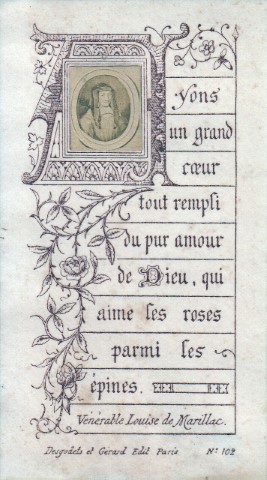 Ayons
un grand
cœur
tout rempli
du pur amour
de Dieu, qui
aime les roses
parmi les
épines.
Vénérable Louise de Marillac.
Desgodets et Gérard Edit. Paris Nº. 102